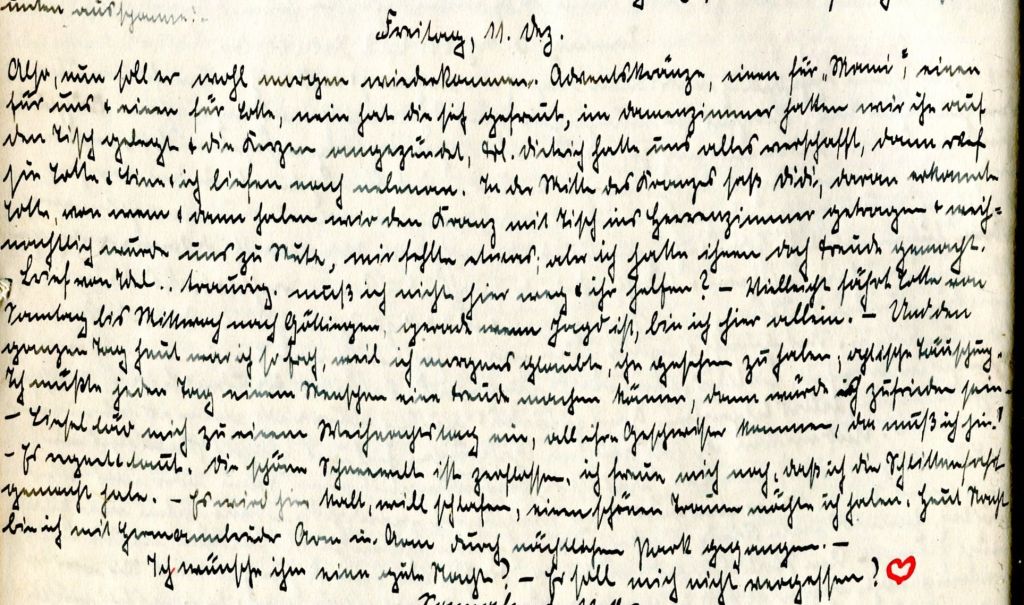 unten ausspanne!-
Freitag, 11. Dez.
Also, nun soll er wohl morgen wiederkommen. Adventskränze, einen für „Mami“, einen
für uns + einen für Lotte, nein hat die sich gefreut, im Damenzimmer hatten wir ihn auf
den Tisch gelegt + die Kerzen angezündet, Frl. Dietrich hatte uns alles verschafft, dann rief
sie Lotte + + ich liefen nach nebenan. In der Mitte des Kranzes saß Didi, daran erkannte
Lotte, von wem + dann haben wir den Kranz mit Tisch ins Herrenzimmer getragen + weih-
nachtlich wurde uns zu Mute, mir fehlte etwas; aber ich hatte ihnen doch Freude gemacht.
Brief von .. traurig. muß ich nicht hier weg + ihr helfen? – Vielleicht fährt Lotte von
Samstag bis Mittwoch nach Göttingen, gerade wenn Jagd ist, bin ich hier allein. – Und den
ganzen Tag heut war ich so froh, weil ich morgens glaubte, ihn gesehen zu haben; optische Täuschung.
Ich müßte jeden Tag einem Menschen eine Freude machen können, dann würde ich zufrieden sein.
– Liesel lud mich zu einem Weihnachtstag ein, all ihre Geschwister kommen, da muß ich hin!
– Es regnet + taut. Die schöne Schneewelt ist zerflossen, ich freue mich noch, daß ich die Schlittenfahrt
gemacht habe. – Es wird kalt, will schlafen, einen schönen Traum möchte ich haben. Heut Nacht
bin ich mit Arm in Arm durch nächtlichen Park gegangen. –
Ich wünsche ihm eine gute Nacht? – Er soll mich nicht vergessen!